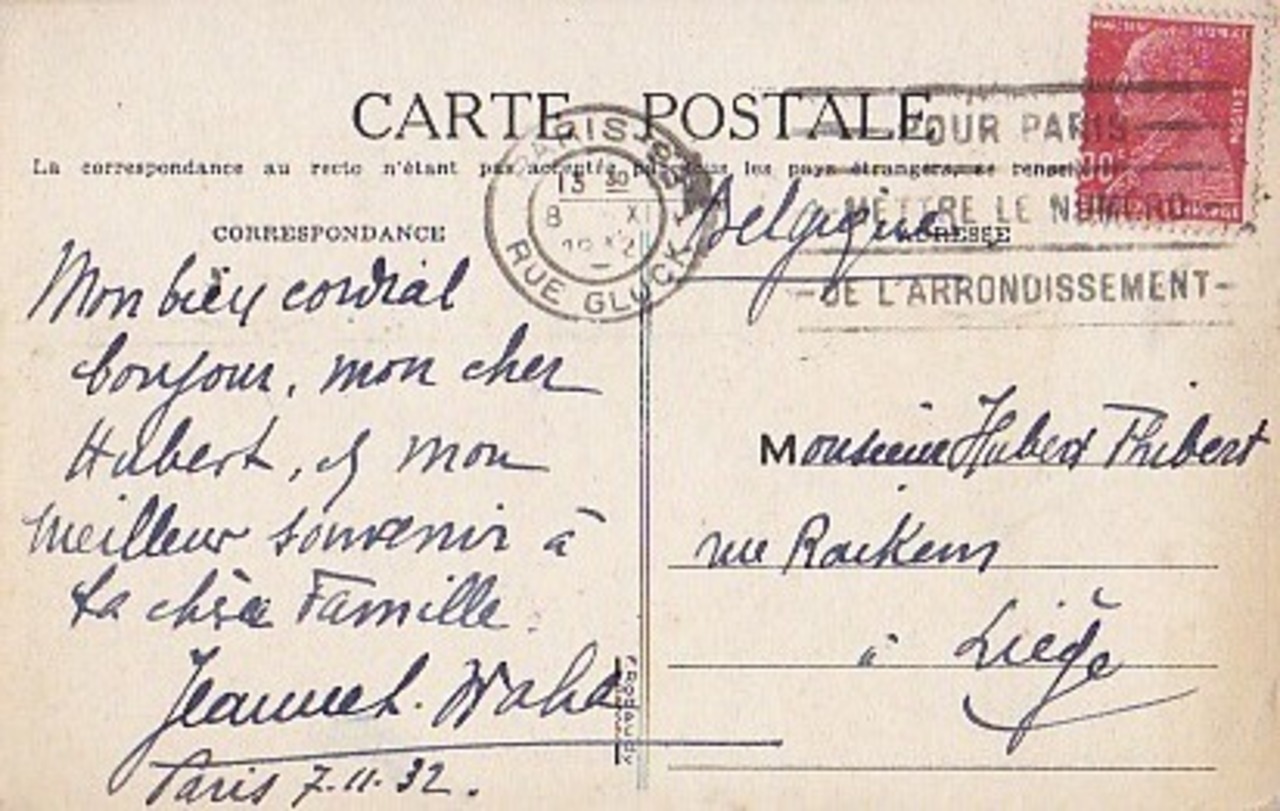 CARTE POSTALE
La correspondance au recto n'étant pas acceptée par tous les pays étrangers, se renseigner
PARIS
RUE GLUCK
13 30
8 XI
POUR PARIS
METTRE LE NUMÉRO
DE L'ARRONDISSEMENT
POSTES
CORRESPONDANCE
ADRESSE
Mon bien cordial
bonjour, mon cher
Hubert, et mon
meilleur souvenir à
ta chère Famille.
Paris 7.11.32.
Belgique
Monsieur Hubert Thibert
rue Raikem
à Liège